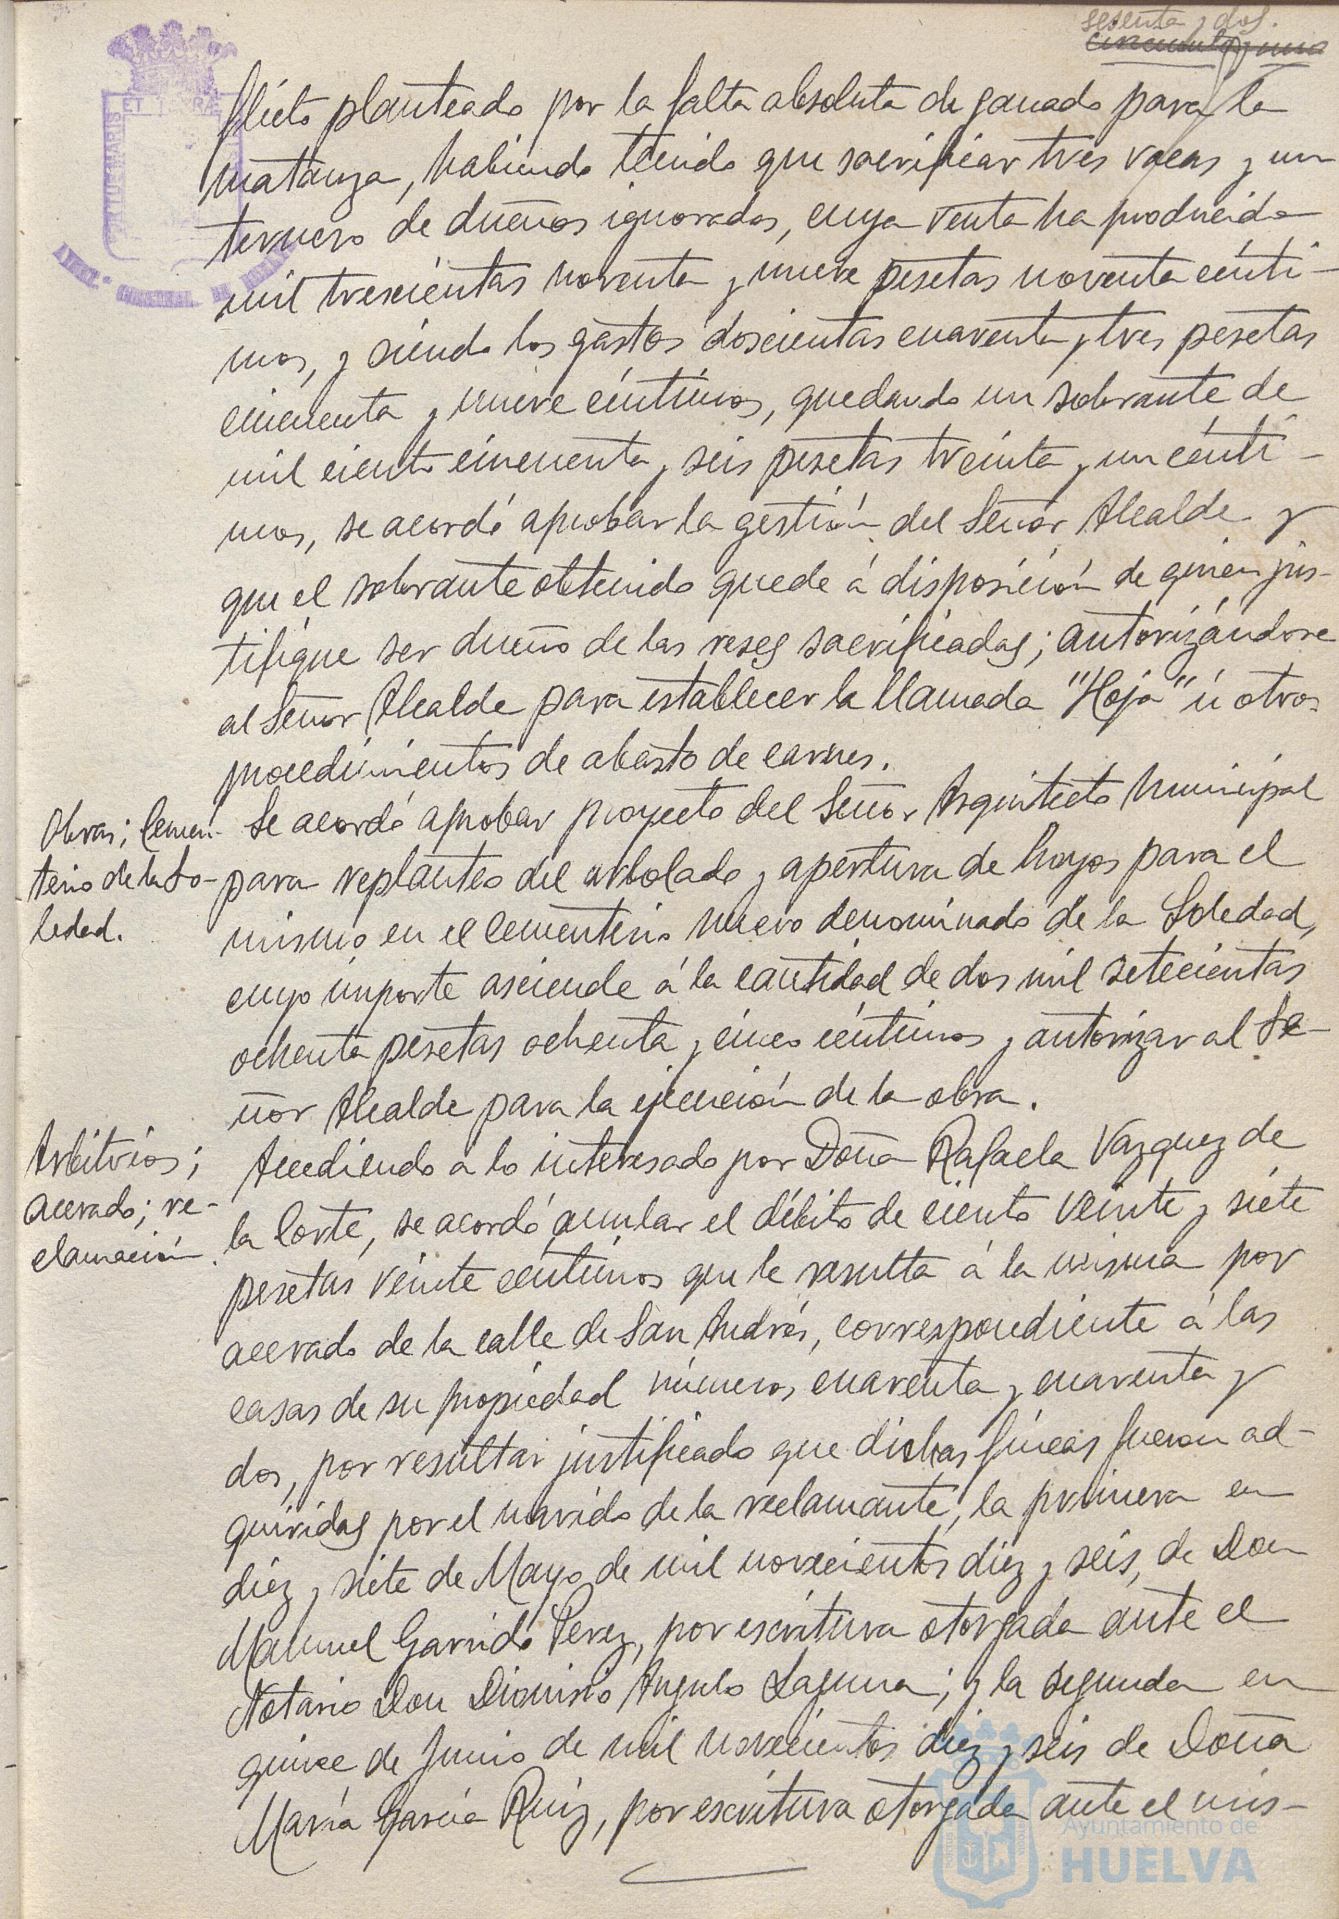 sesenta y dos.
cincuenta y uno
flicto planteado por la falta absoluta de ganado para la
matanza, habiendo tenido que sacrificar tres vacas y un
ternero de dueños ignorados, cuya venta ha producido
mil trescientas noventa y nueve pesetas noventa cénti-
mos, y siendo los gastos doscientas cuarenta y tres pesetas
cincuenta y nueve céntimos, quedando un sobrante de
mil ciento cincuenta y seis pesetas treinta y un cénti-
mos, se acordó aprobar la gestión del Señor Alcalde y
que el sobrante obtenido quede á disposición de quien jus-
tifique ser dueño de las reses sacrificadas; autorizándose
al Señor Alcalde para establecer la llamada "Hoja" ú otros
procedimientos de abasto de carnes.
Obras; Cemen-
terio de la So-
ledad.
Se acordó aprobar proyecto del Señor Arquitecto Municipal
para replanteo del arbolado y apertura de hoyos para el
mismo en el cementerio nuevo denominado de la Soledad,
cuyo importe asciende á la cantidad de dos mil setecientas
ochenta pesetas ochenta y cinco céntimos y autorizar al Se-
ñor Alcalde para la ejecución de la obra.
Arbitrios;
acerado; re-
clamación.
Accediendo a lo interesado por Doña Rafaela Vazquez de
la Corte, se acordó anular el débito de ciento veinte y siete
pesetas veinte céntimos que le resulta á la misma por
acerado de la calle de San Andrés, correspondiente á las
casas de su propiedad números cuarenta y cuarenta y
dos, por resultar justificado que dichas fincas fueron ad-
quiridas por el marido de la reclamante, la primera en
diez y siete de Mayo de mil novecientos diez y seis, de Don
Manuel Garrido Perez, por escritura otorgada ante el
Notario Don Dionisio Angulo Laguna; y la segunda en
quince de Junio de mil novecientos diez y seis de Doña
María García Ruiz, por escritura otorgada ante el mis-
Ayuntamiento de
HUELVA